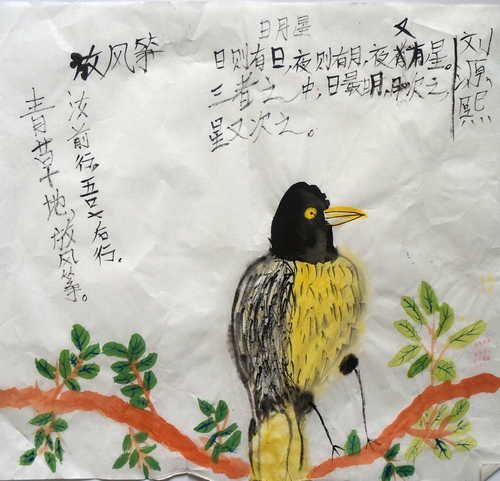 放风筝
青草地，放风筝。
汝前行，吾后行。
日月星
日则有日，夜则有月，夜又有星。
三者之中，日最明，月次之，
星又次之。
刘源熙